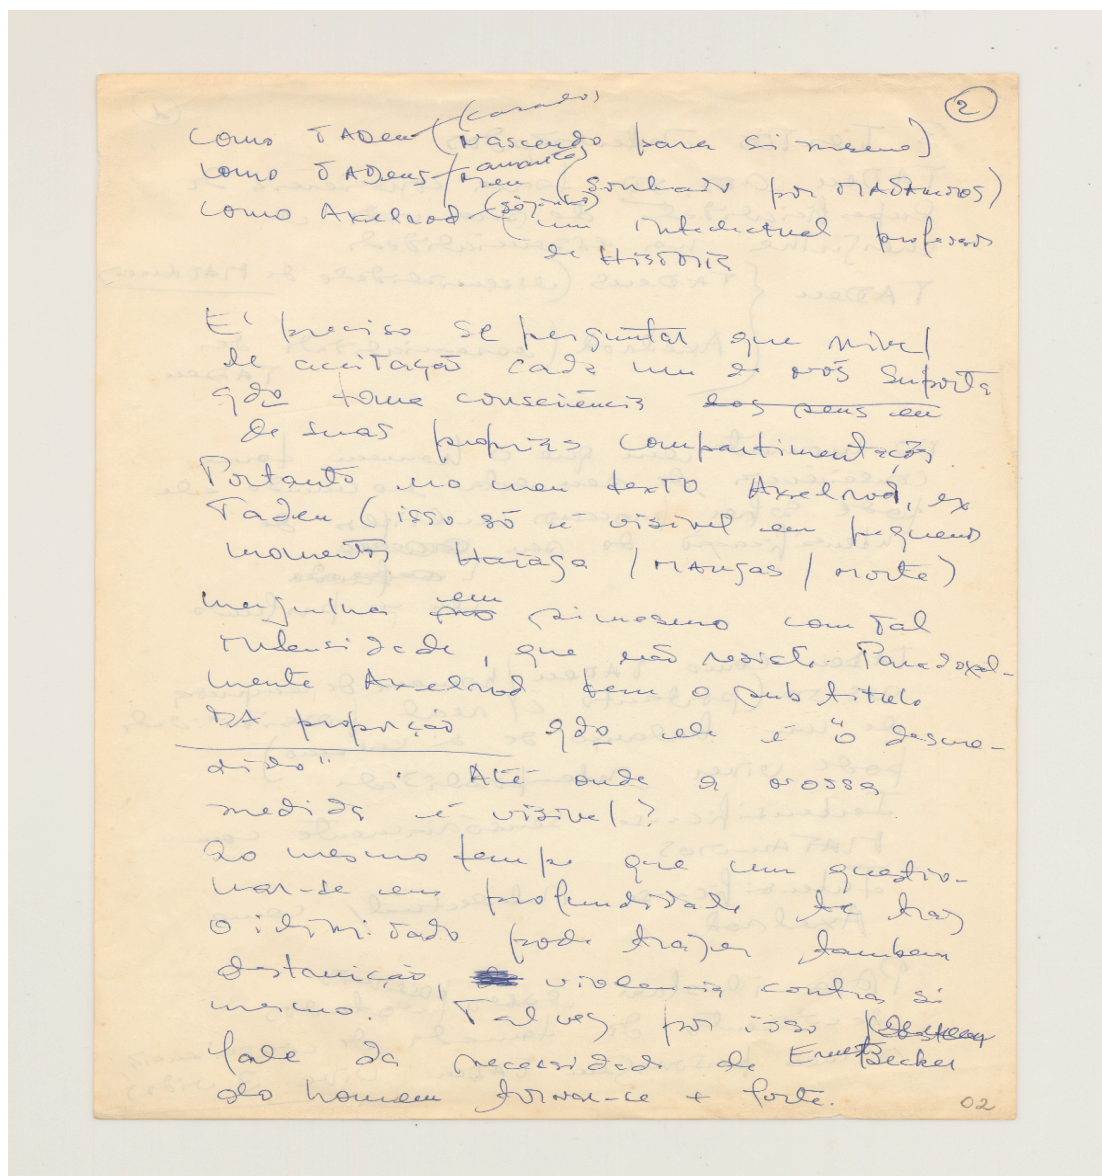 2
(casados)
como TADeu (Nascendo para si mesmo)
(amante)
como TADeus / (sonhado por MATAMOROS)
como Axelrod (sòzinho) um intelectual professor
de HISTÓRIA
É preciso se perguntar que nível
de aceitação cada um de nós suporta
qdo toma consciência aos seus em
de suas proprias compartimentações.
Portanto no meu texto Axelrod, ex
Tadeu (isso só é visivel em pequenos
momentos Haiaga / MANgas / Morte)
mergulha em si mesmo com tal
intensidade, que não resiste. Paradoxal-
mente Axelrod tem o subtitulo
DA proporção qdo ele é "o desme-
dido". Até onde a nossa
medida é visivel?
Ao mesmo tempo que um questio-
nar-se em profundidade te traz
o ilimitado pode trazer tambem
destruição, violencia contra si
mesmo. Talvez por isso
Ernest Becker
fale da necessidade de
do homem tornar-se + forte.
02